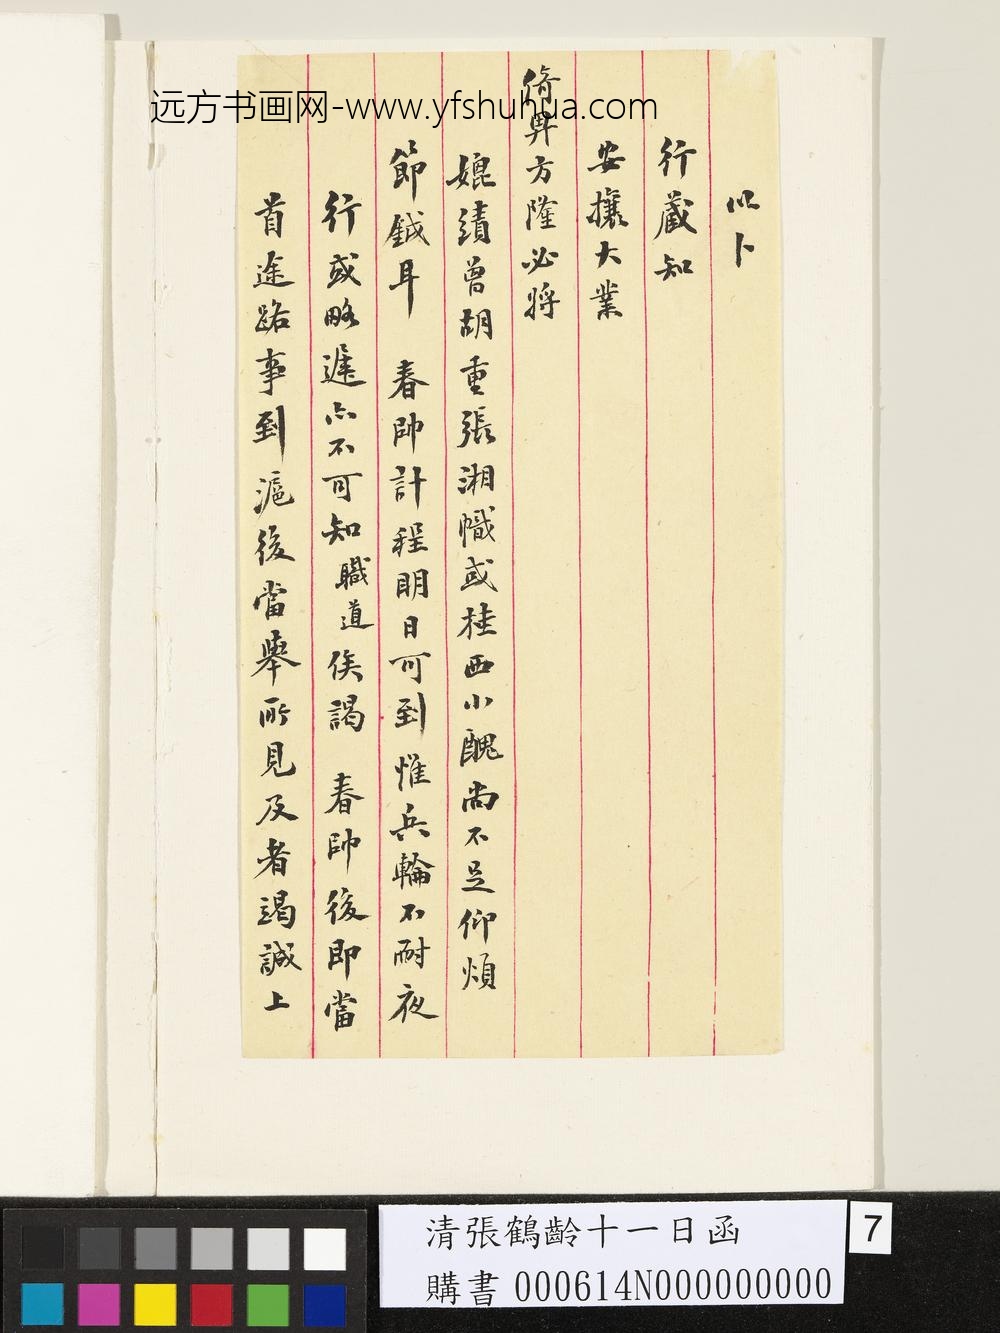 远方书画网-www.yfshuhua.com
以卜
行藏知
安攘大業
倚畀方隆必將
媲績曾胡重張湘幟或桂西小醜尚不足仰煩
節鉞耳　春帥計程明日可到惟兵輪不耐夜
行或略遲亦不可知職道俟謁　春帥後即當
首途路事到滬後當舉所見及者竭誠上
清張鶴齡十一日函
購書 000614N000000000
7